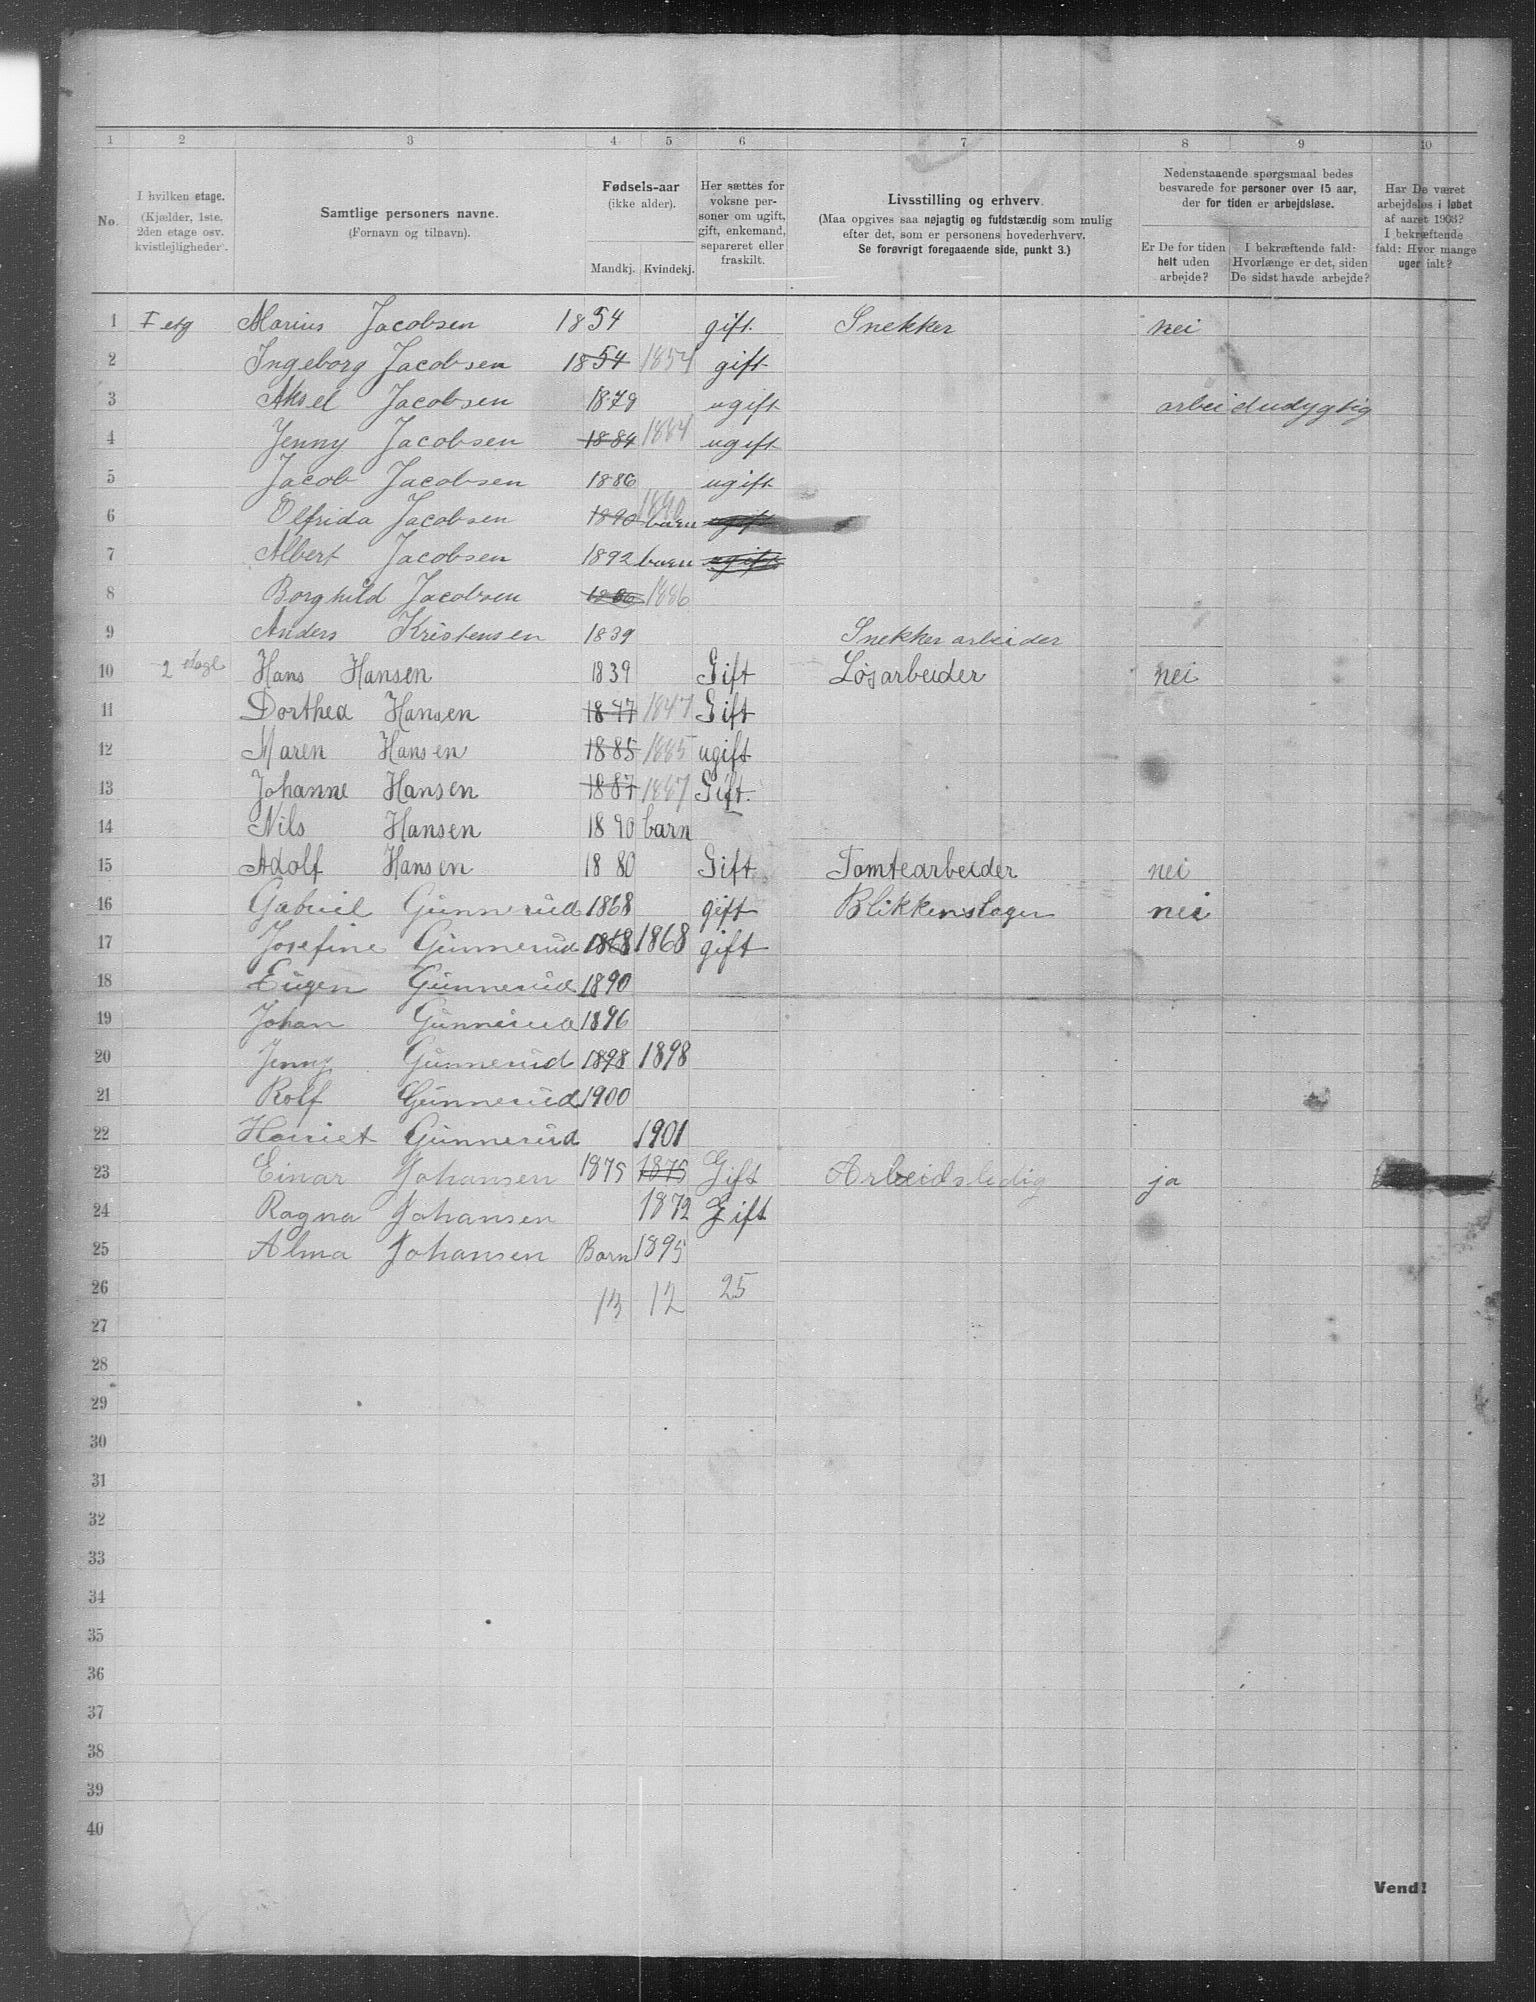 1 2 3 4 5 6 7 8 9 10
No.
I hvilken etage.
(Kjælder, 1ste.
2den etage osv.
kvistlejligheder).
Samtlige personers navne.
(Fornavn og tilnavn).
Fødsels-aar
(ikke alder).
Mandkj. Kvindekj.
Her sættes for
voksne per-
soner om ugift,
gift, enkemand,
separeret eller
fraskilt.
Livsstilling og erhverv.
(Maa opgives saa nøjagtig og fuldstændig som mulig
efter det, som er personens hovederhverv.
Se forøvrigt foregaaende side, punkt 3.)
Nedenstaaende spørgsmaal bedes
besvarede for personer over 15 aar,
der for tiden er arbejdsløse.
Er De for tiden
helt uden
arbejde?
I bekræftende fald:
Hvorlænge er det, siden
De sidst havde arbejde?
Har De været
arbejdsløs i løbet
af aaret 1903?
I bekræftende
fald: Hvor mange
uger ialt?
1 I etg Marius Jacobsen 1854 gift Snekker nei
2 Ingeborg Jacobsen 1854 1854 gift
3 Aksel Jacobsen 1879 ugift arbeidudygtig
4 Jenny Jacobsen 1884 1884 ugift
5 Jacob Jacobsen 1886 ugift
6 Olfrida Jacobsen 1890 1890 barn ugift
7 Albert Jacobsen 1892 barn ugift
8 Borghild Jacobsen 1886
9 Anders Kristensen 1839 Snekker arbeider
10 2 etage Hans Hansen 1839 Gift Løsarbeider nei
11 Dorthea Hansen 1847 1847 Gift
12 Maren Hansen 1885 1885 ugift
13 Johanne Hansen 1887 1887 Gift.
14 Nils Hansen 1890 barn
15 Adolf Hansen 1880 Gift Tomtearbeider nei
16 Gabriel Gunnerud 1868 gift Blikkenslager nei
17 Josefine Gunnerud 1868 1868 gift
18 Eugen Gunnerud 1890
19 Johan Gunnerud 1896
20 Jenny Gunnerud 1898 1898
21 Rolf Gunnerud 1900
22 Harriet Gunnerud 1901
23 Einar Johansen 1875 1875 Gift Arbeidsledig ja
24 Ragna Johansen 1872 Gift
25 Alma Johansen Barn 1895
26 13 12 25
27
28
29
30
31
32
33
34
35
36
37
38
39
40
Vend!